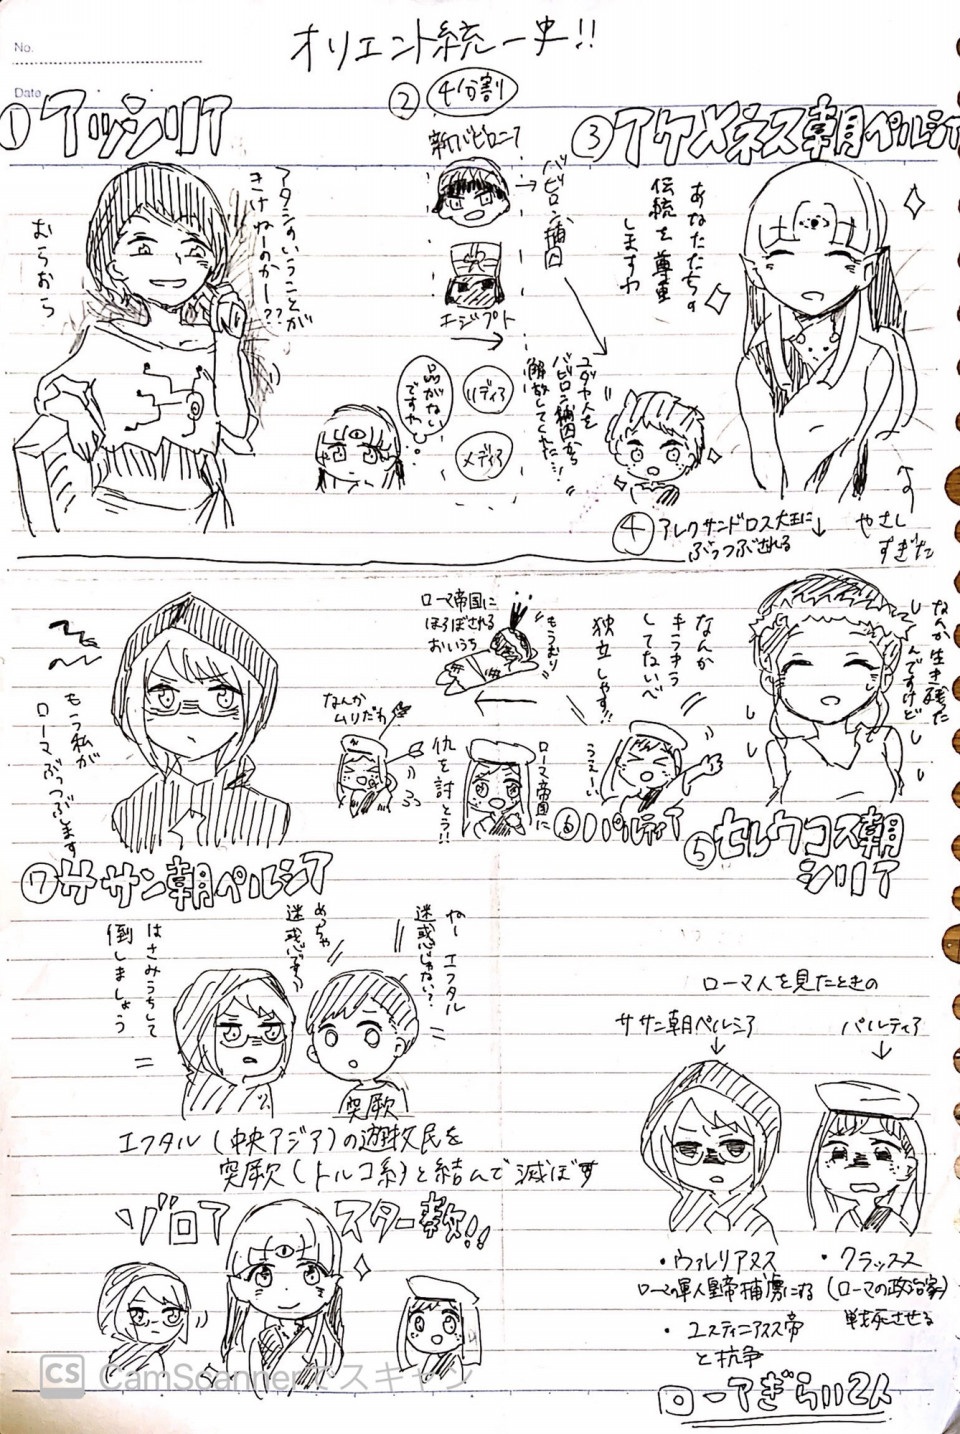 No.
Date
オリエント統一史!!
①アッシリア
おらおら
アタシのいうことが
きけねーのかー??
②4分割
新バビロニア
→バビロン捕囚
エジプト
リディア
メディア
品がない
ですわ
③アケメネス朝ペルシア
あなたたちの
伝統を尊重
しますわ
ユダヤ人を
バビロン捕囚から
解放してくれた…!
やさし
すぎた
④アレクサンドロス大王に
ぶっつぶされる
なんか生き残った
んですけど
⑤セレウコス朝
シリア
なんか
キラキラ
してないべ
独立しやす!!
うえーい
⑥パルティア
ローマ帝国に
仇を討とう!!
なんか
ムリだわ
ローマ帝国に
ほろぼされる
おいうち
もうむり
もう私が
ローマぶっつぶします
⑦ササン朝ペルシア
やー エフタル
迷惑じゃない?
めっちゃ
迷惑です
はさみうちして
倒しましょう
突厥
エフタル(中央アジア)の遊牧民を
突厥(トルコ系)と結んで滅ぼす
ゾロアスター教!!
ローマ人を見たときの
ササン朝ペルシア
パルティア
・ウァレリアヌス
ローマ軍人皇帝捕虜にする
・ユスティニアヌス帝
と抗争
・クラッスス
(ローマの政治家)
戦死させる
ローマぎらい2人
CS CamScannerでスキャン